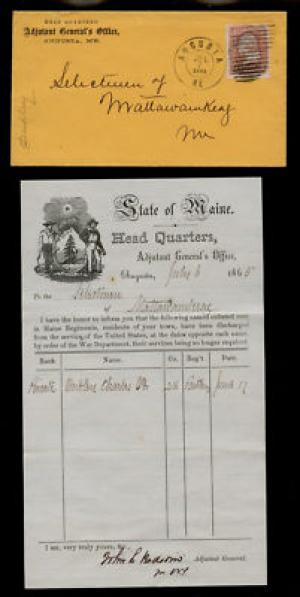 HEAD QUARTERS
Adjutant General's Office,
AUGUSTA, ME.
AUGUSTA
ME.
Selectmen of
Mattawamkeag
Me
State of Maine.
Head Quarters,
Adjutant General's Office,
Augusta, July 6 1865
To the Selectmen
of Mattawamkeag
I have the honor to inform you that the following named enlisted men
in Maine Regiments, residents of your town, have been discharged
from the service of the United States, at the dates opposite each name,
by order of the War Department, their services being no longer required
Rank. Name. Co. Reg't. Date.
Private Charles June 17
I am, very truly yours, &c.,
John L Hodsdon
Adjutant General.